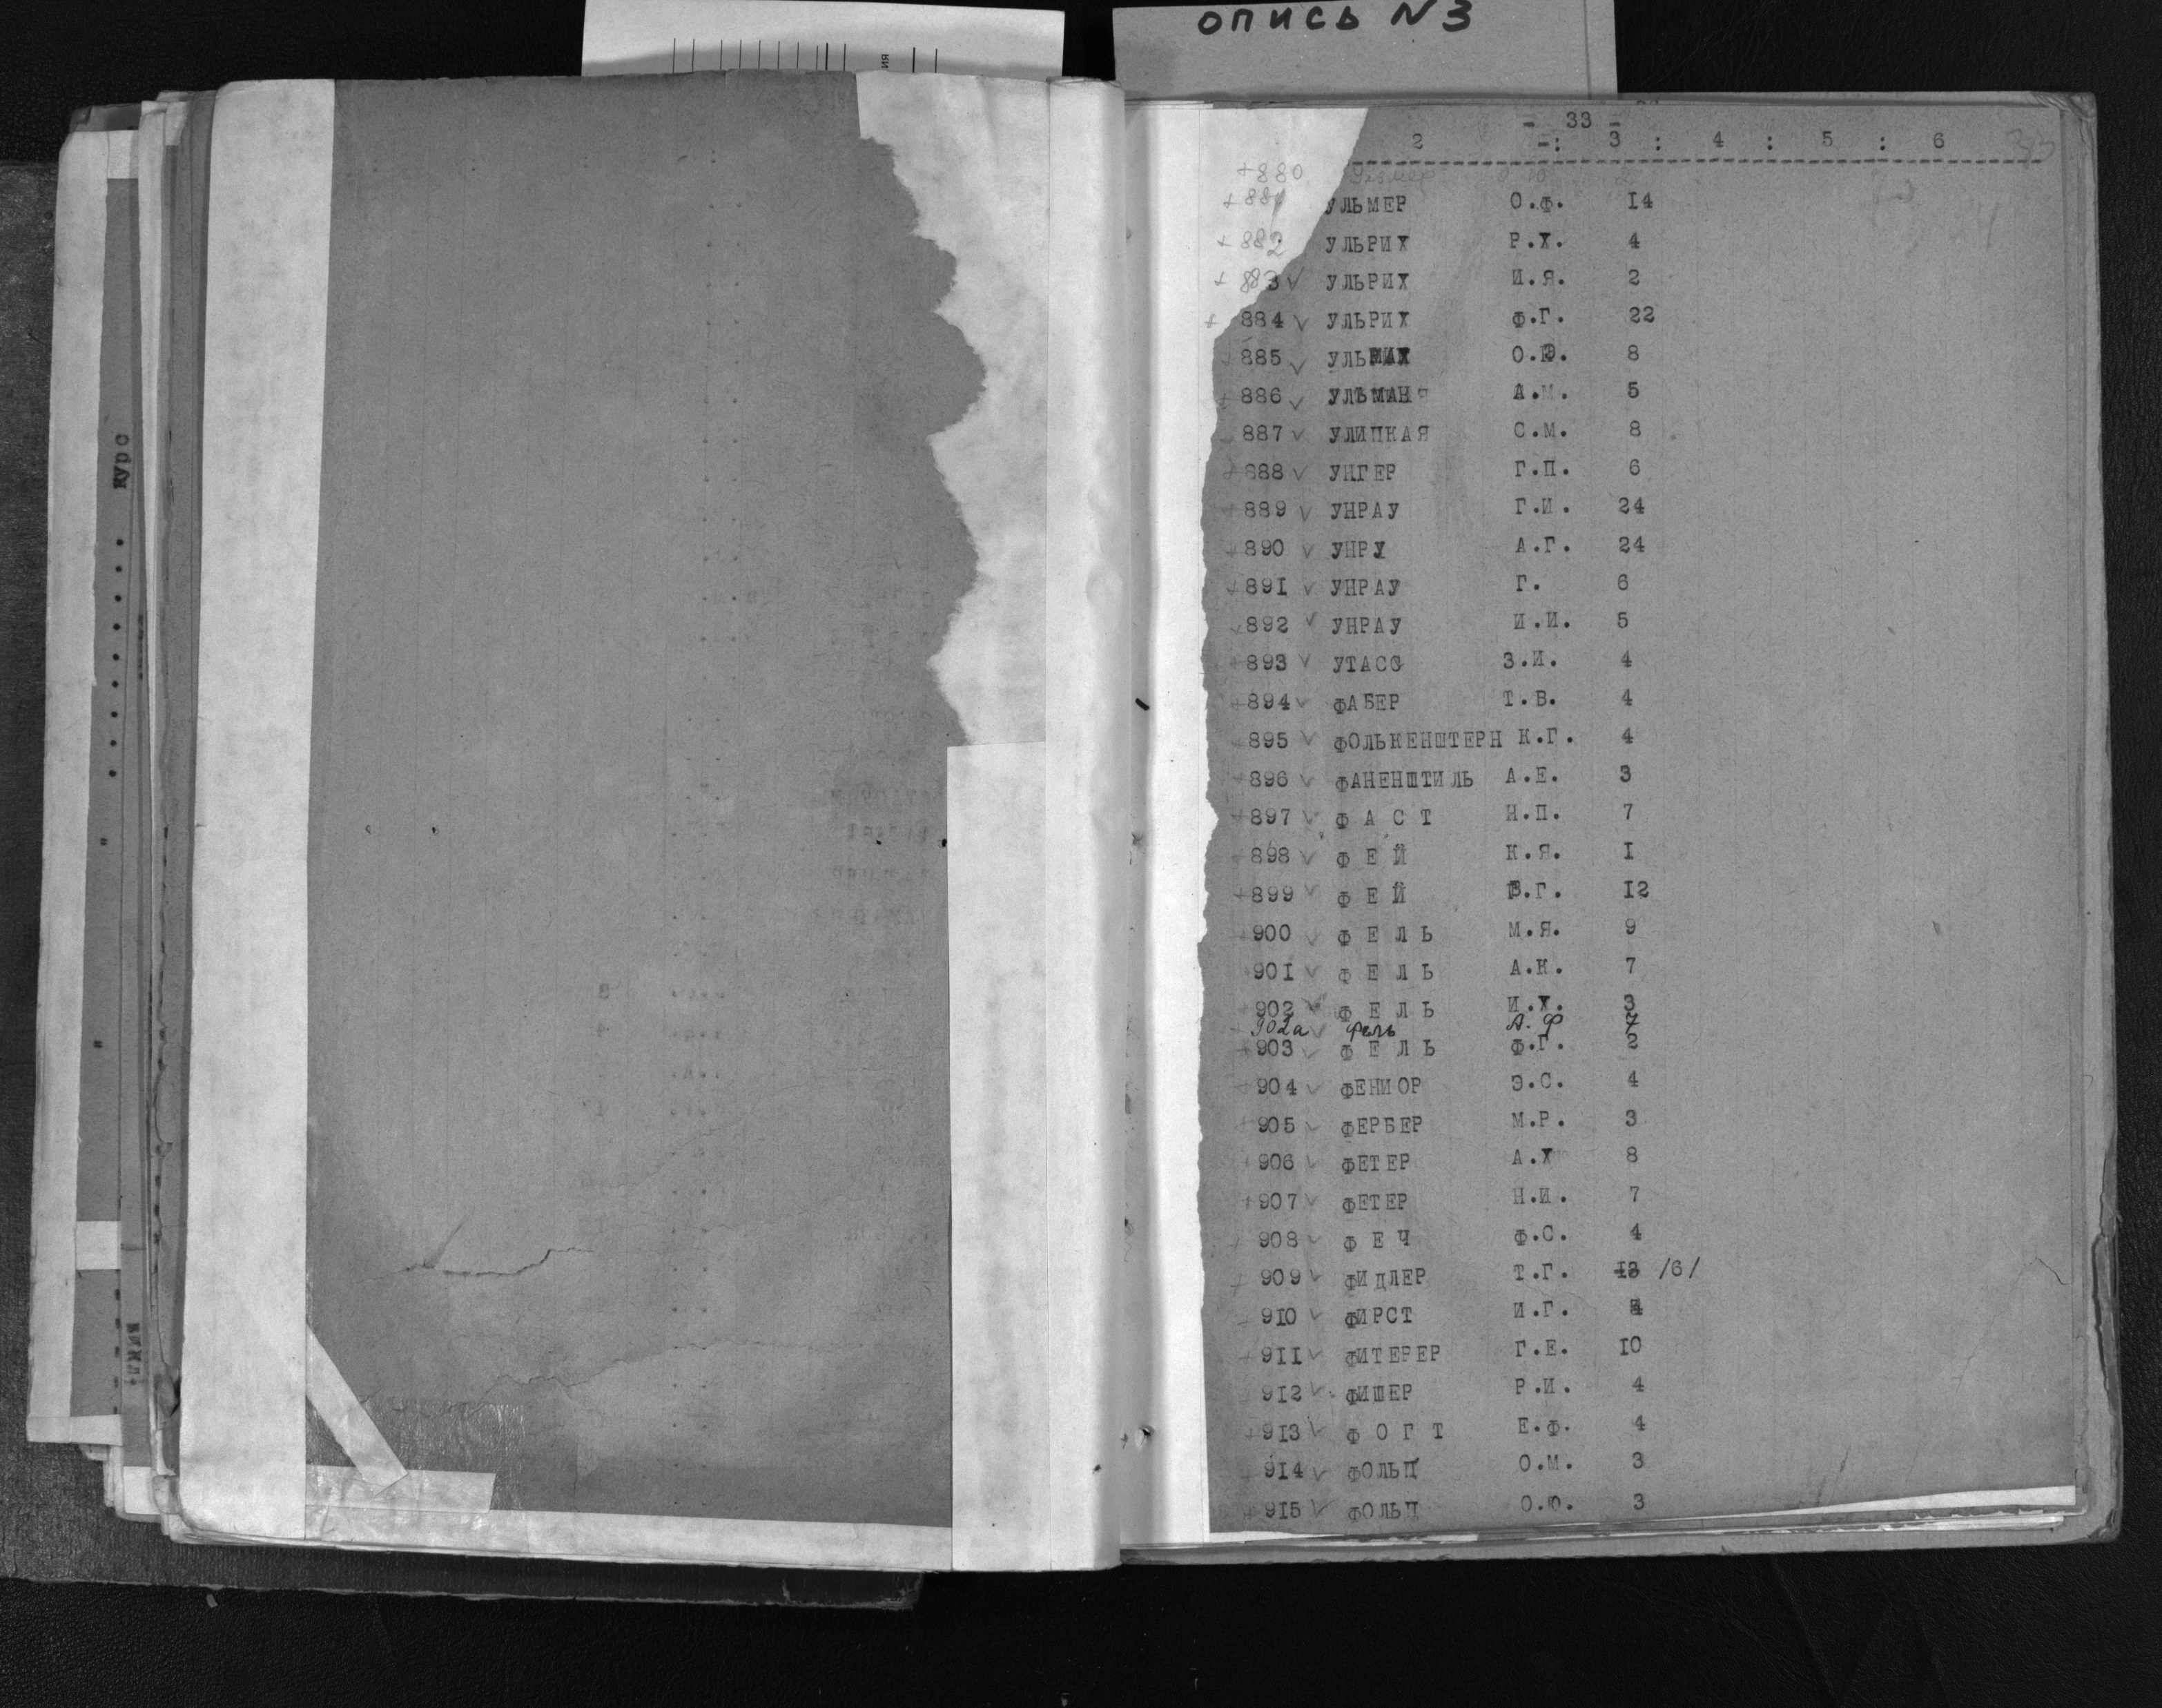 опись N 3
курс
- 33 -
2 : 3 : 4 : 5 : 6
33
+880 Ульмер О.Ю. 2
+881 УЛЬМЕР О.Ф. 14
+882 УЛЬРИХ Р.Х. 4
+883 √ УЛЬРИХ И.Я. 2
+884 √ УЛЬРИХ Ф.Г. 22
885 √ О. 8
+886 √ УЛЬМАН А.М. 5
887 √ УЛИЦКАЯ С.М. 8
+888 √ УНГЕР Г.П. 6
+889 √ УНРАУ Г.И. 24
+890 √ УНРУ А.Г. 24
+891 √ УНРАУ Г. 6
892 √ УНРАУ И.И. 5
+893 √ УТАСС З.И. 4
+894 √ ФАБЕР Т.В. 4
+895 √ ФОЛЬКЕНШТЕРН К.Г. 4
+896 √ ФАНЕНШТИЛЬ А.Е. 3
+897 √ Ф А С Т Н.П. 7
+898 √ Ф Е Й К.Я. I
+899 √ Ф Е Й В.Г. I2
+900 √ Ф Е Л Ь М.Я. 9
+901 √ Ф Е Л Ь А.К. 7
+902 √ Ф Е Л Ь И.Х. 3
902а √ Фель А.Ф 7
+903 √ Ф Е Л Ь Ф.Г. 2
+904 √ ФЕНИОР Э.С. 4
+905 √ ФЕРБЕР М.Р. 3
+906 √ ФЕТЕР А.Х 8
+907 √ ФЕТЕР Н.И. 7
+908 √ Ф Е Ч Ф.С. 4
+909 √ ФИДЛЕР Т.Г. /6/
+910 √ ФИРСТ И.Г. 4
+911 √ ФИТЕРЕР Г.Е. IO
912 √ ФИШЕР Р.И. 4
+913 √ Ф О Г Т Е.Ф. 4
+914 √ ФОЛЬЦ О.М. 3
+915 √ ФОЛЬЦ О.Ю. 3